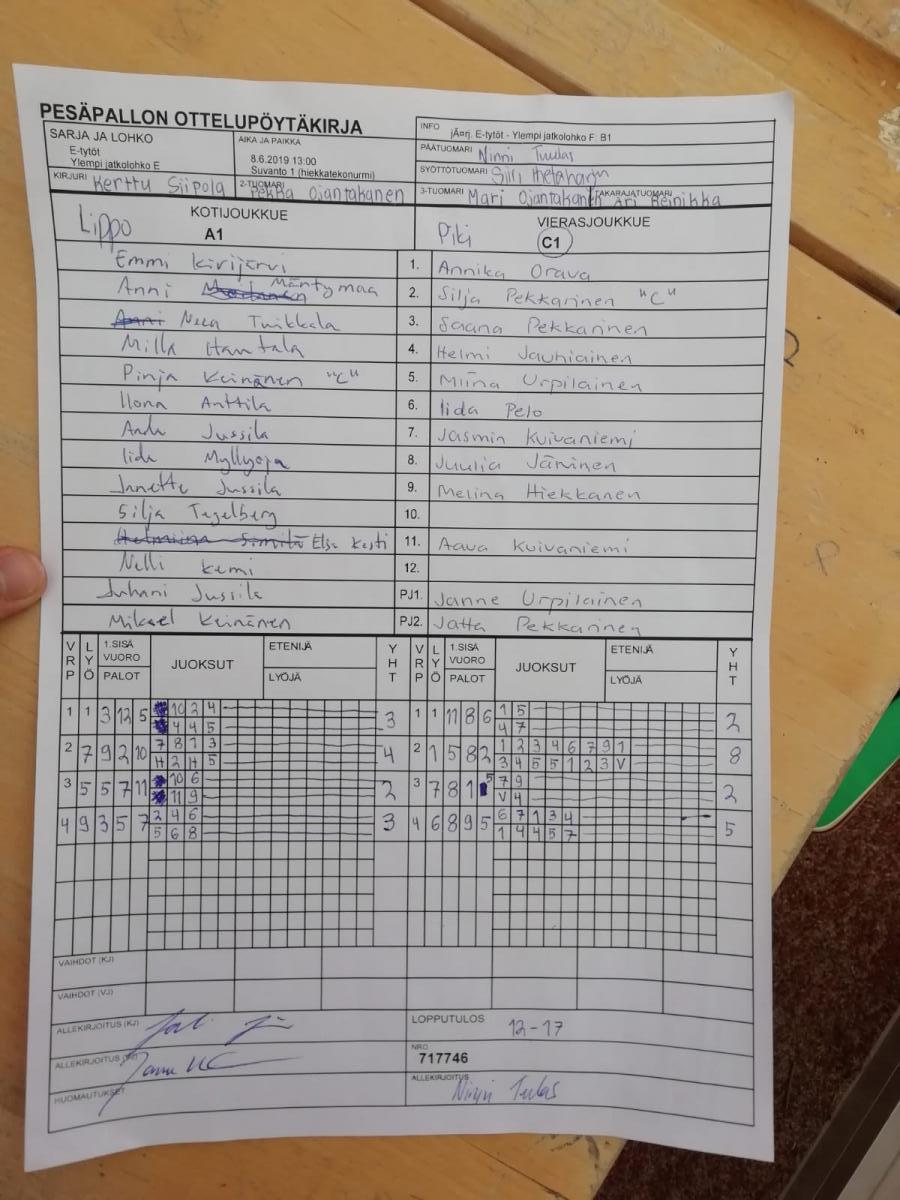 PESÄPALLON OTTELUPÖYTÄKIRJA
SARJA JA LOHKO
E-tytöt
Ylempi jatkolohko E
AIKA JA PAIKKA
8.6.2019 13:00
Suvanto 1 (hiekkatekonurmi)
INFO
jÃ¤rj. E-tytöt - Ylempi jatkolohko F: B1
PÄÄTUOMARI Ninni Tuulas
SYÖTTÖTUOMARI
KIRJURI Kerttu Siipola
2-TUOMARI Pekka Ojantakanen
3-TUOMARI Mari Ojantakanen
TAKARAJATUOMARI Ari Reinikka
Lippo KOTIJOUKKUE A1
Piki VIERASJOUKKUE C1
Emmi Kivijärvi 1. Annika Orava
Anni Mäntymaa 2. Silja Pekkarinen "C"
Neea Tuikkala 3. Saana Pekkarinen
Milla Hantala 4. Helmi Jauhiainen
Pinja Keinänen "C" 5. Miina Urpilainen
Ilona Anttila 6. Iida Pelo
Jussila 7. Jasmin Kuivaniemi
Iida Myllyoja 8. Juulia Järvinen
Janette Jussila 9. Melina Hiekkanen
Silja Tegelberg 10.
Elsa Kesti 11. Aava Kuivaniemi
Nelli Kemi 12.
Juhani Jussila PJ1. Janne Urpilainen
Mikael Keinänen PJ2. Jatta Pekkarinen
VRP LYÖ 1.SISÄ VUORO PALOT JUOKSUT ETENIJÄ LYÖJÄ YHT VRP LYÖ 1.SISÄ VUORO PALOT JUOKSUT ETENIJÄ LYÖJÄ YHT
1 1 3 12 5 10 2 4 3 1 1 11 8 6 1 5 2
4 4 5 4 7
2 7 9 2 10 7 8 1 3 4 2 1 5 8 2 1 2 3 4 6 7 9 1 8
H 2 H 5 3 4 5 5 1 2 3 V
3 5 5 7 11 10 6 2 3 7 8 1 5 7 9 2
11 9 V 4
4 9 3 5 7 2 4 6 3 4 6 8 9 5 6 7 1 3 4 5
5 6 8 1 4 4 5 7
VAIHDOT (KJ)
VAIHDOT (VJ)
ALLEKIRJOITUS (KJ)
LOPPUTULOS 12-17
ALLEKIRJOITUS (VJ)
NRO 717746
HUOMAUTUKSET
ALLEKIRJOITUS Ninni Tuulas